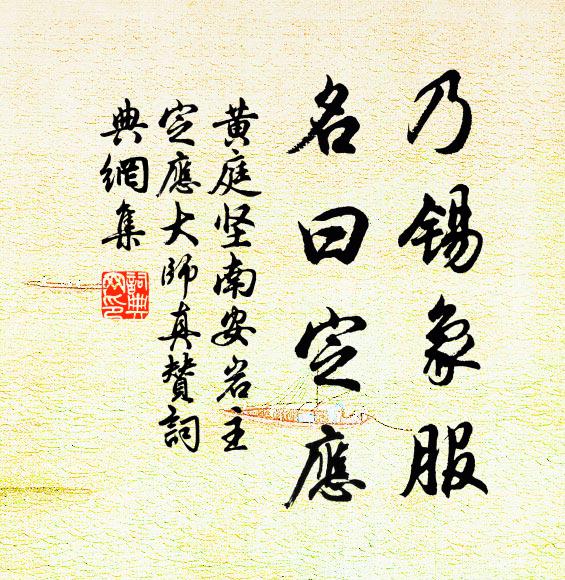 乃锡象服
名曰定應
黃庭坚南安岩主
定應大师真贊詞
典網集
詞典网印